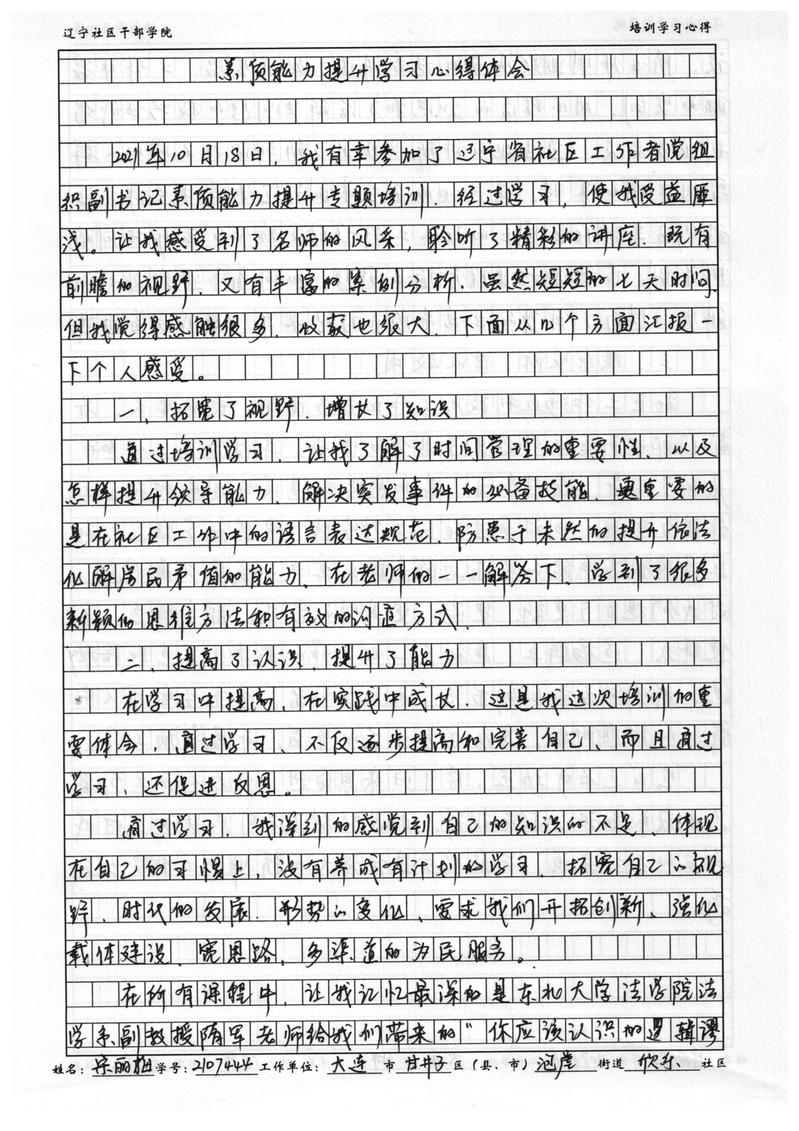 辽宁社区干部学院 培训学习心得
素质能力提升学习心得体会
2021年10月18日，我有幸参加了辽宁省社区工作者党组
织副书记素质能力提升专题培训，经过学习，使我受益匪
浅。让我感受到了名师的风采，聆听了精彩的讲座，既有
前瞻的视野，又有丰富的案例分析，虽然短短的七天时间
但我觉得感触很多，收获也很大，下面从几个方面汇报一
下个人感受。
一、拓宽了视野，增长了知识
通过培训学习，让我了解了时间管理的重要性，以及
怎样提升领导能力，解决突发事件的必备技能，更重要的
是在社区工作中的语言表达规范，防患于未然的提升依法
化解居民矛盾的能力，在老师的一一解答下，学到了很多
新颖的思维方法和有效的沟通方式。
二、提高了认识，提升了能力
在学习中提高，在实践中成长，这是我这次培训的重
要体会，通过学习，不仅逐步提高和完善自己，而且通过
学习，还促进反思。
通过学习，我深刻的感觉到自己的知识的不足，体现
在自己的习惯上，没有养成有计划的学习，拓宽自己的视
野，时代的发展，形势的变化，要求我们开拓创新，强化
载体建设，宽思路，多渠道的为民服务。
在所有课程中，让我记忆最深的是东北大学法学院法
学系副教授隋军老师给我们带来的“你应该认识的逻辑谬
姓名：宋丽 学号：2107444 工作单位：大连 市 甘井子 区（县、市） 街道 欣乐 社区